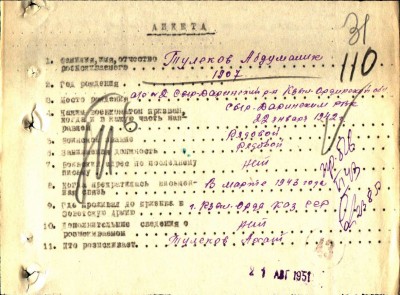 31
АНКЕТА
110
1. Фамилия, имя, отчество разыскиваемого Тулеков Абдумалик
2. Год рождения 1907
3. Место рождения Сыр-Дарьинский р-н Кзыл-Ординской
4. Каким военкоматом призван, когда и в какую часть направлен Сыр-Дарьинским РВК
22 января 1942
5. Воинское звание Рядовой
6. Занимаемая должность Рядовой
7. Воинский адрес по последнему письму Нет
8. Когда прекратилась письменная связь В марте 1943 года
9. Где проживал до призыва в Советскую Армию г. Кзыл-Орда Каз. ССР
10. Дополнительные сведения о разыскиваемом Нет
11. Кто разыскивает Тулеков
21 АВГ 1951